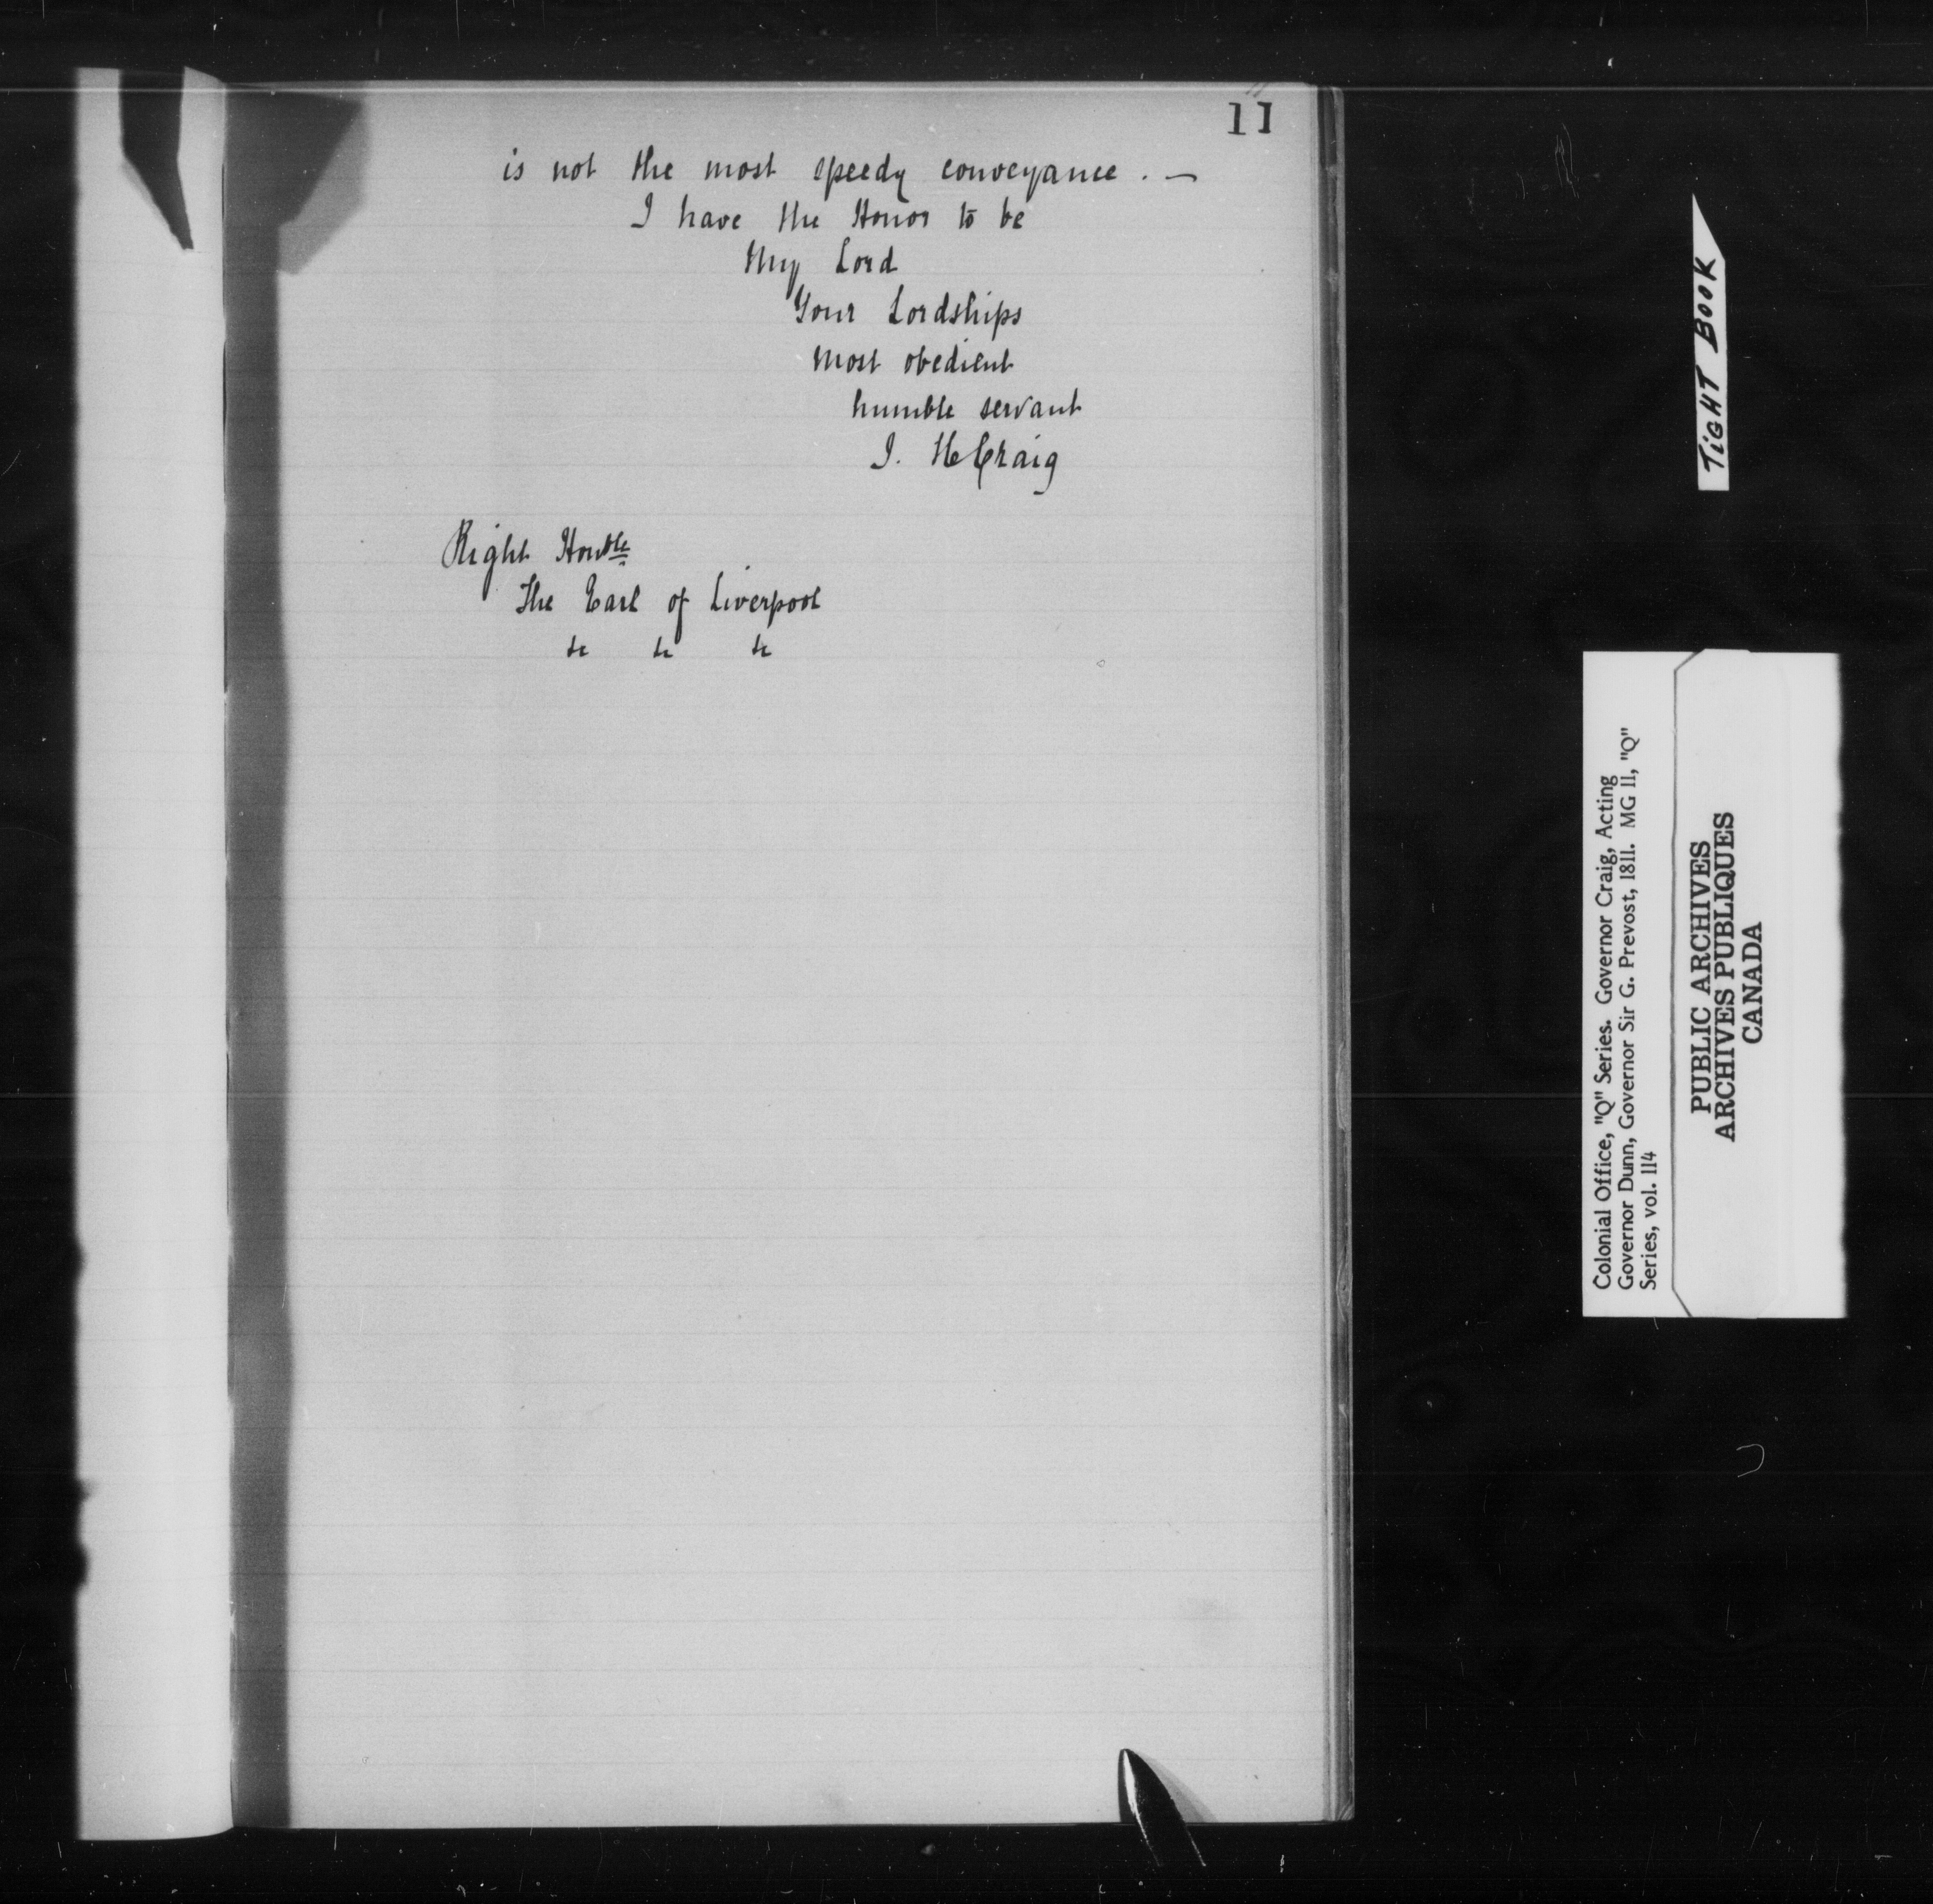 11
is not the most speedy conveyance. —
I have the Honor to be
My Lord
Your Lordships
most obedient
humble servant
J. H Craig
Right Honble
The Earl of Liverpool
&c &c &c
TIGHT BOOK
Colonial Office, "Q" Series. Governor Craig, Acting
Governor Dunn, Governor Sir G. Prevost, 1811. MG 11, "Q"
Series, vol. 114
PUBLIC ARCHIVES
ARCHIVES PUBLIQUES
CANADA